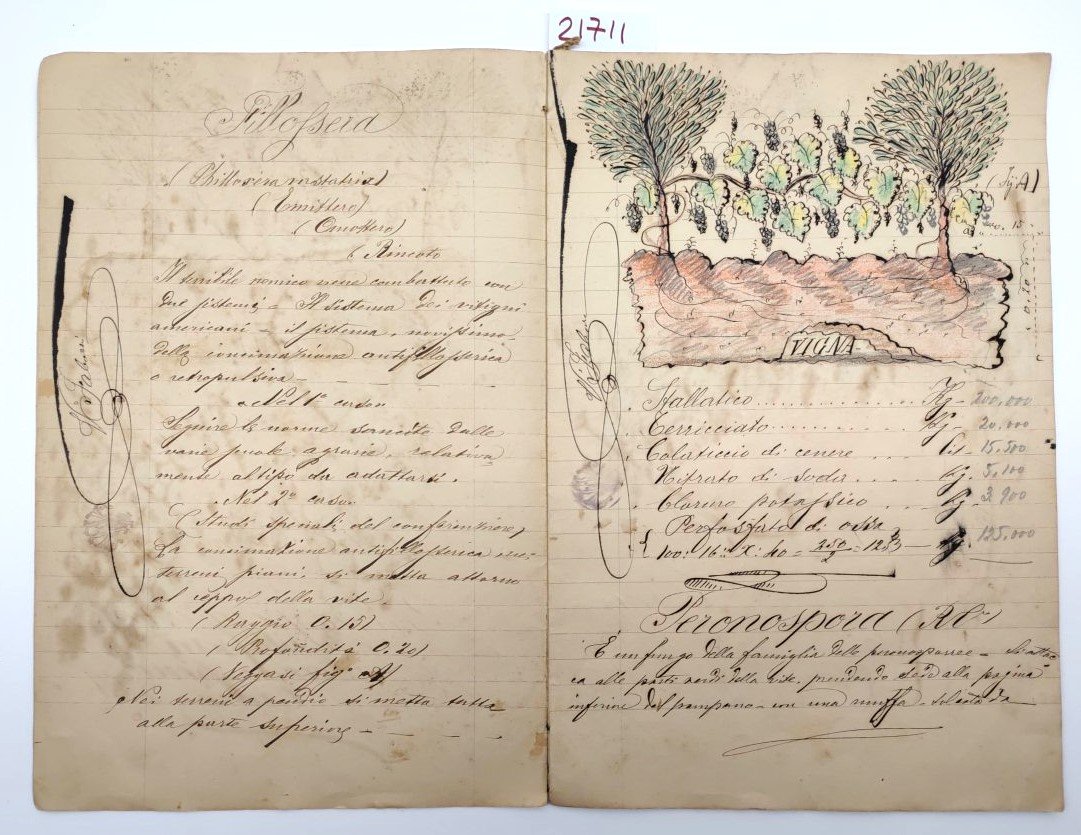 21711
Fillossera
(Phillosera vastatrix)
(Emittero)
(Omottero)
(Rincoto
Il terribile nemico viene combattuto con
due sistemi, - Il sistema dei vitigni
americani - il sistema, novissimo
della concimazione antifillosserica
o retropulsiva
Nel 1° caso
Seguire le norme sancite dalle
varie scuole agrarie, relativa-
mente al tipo da adattarsi.
Nel 2° caso
(Studi speciali del conferenziere)
La concimazione antifillosserica nei
terreni piani, si metta attorno
al ceppo della vite.
(Raggio 0.15)
(Profondità 0.20)
(Veggasi fig A)
Nei terreni a pendio si metta tutta
alla parte superiore
(Fig. A)
15
VIGNA
Stallatico Kg - 200,000
Terricciato Kg - 20.000
Colaticcio di cenere Lit - 15,500
Nitrato di soda Kg. 5,100
Cloruro potassico Kg. 3.900
Perfosfato di ossa
100: 16:: X: 40 = 250/2 = 125 195.000
Peronospora
È un fungo della famiglia delle peronosporee - Si attac-
ca alle parti verdi della vite, prendendo sede alla pagina
inferiore del pampano - con una muffa